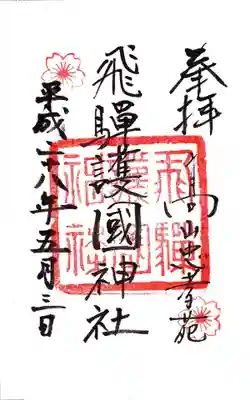 奉拝
高山忠孝苑
飛驒護國神社
平成二八年五月三日
飛驒
護國
神社